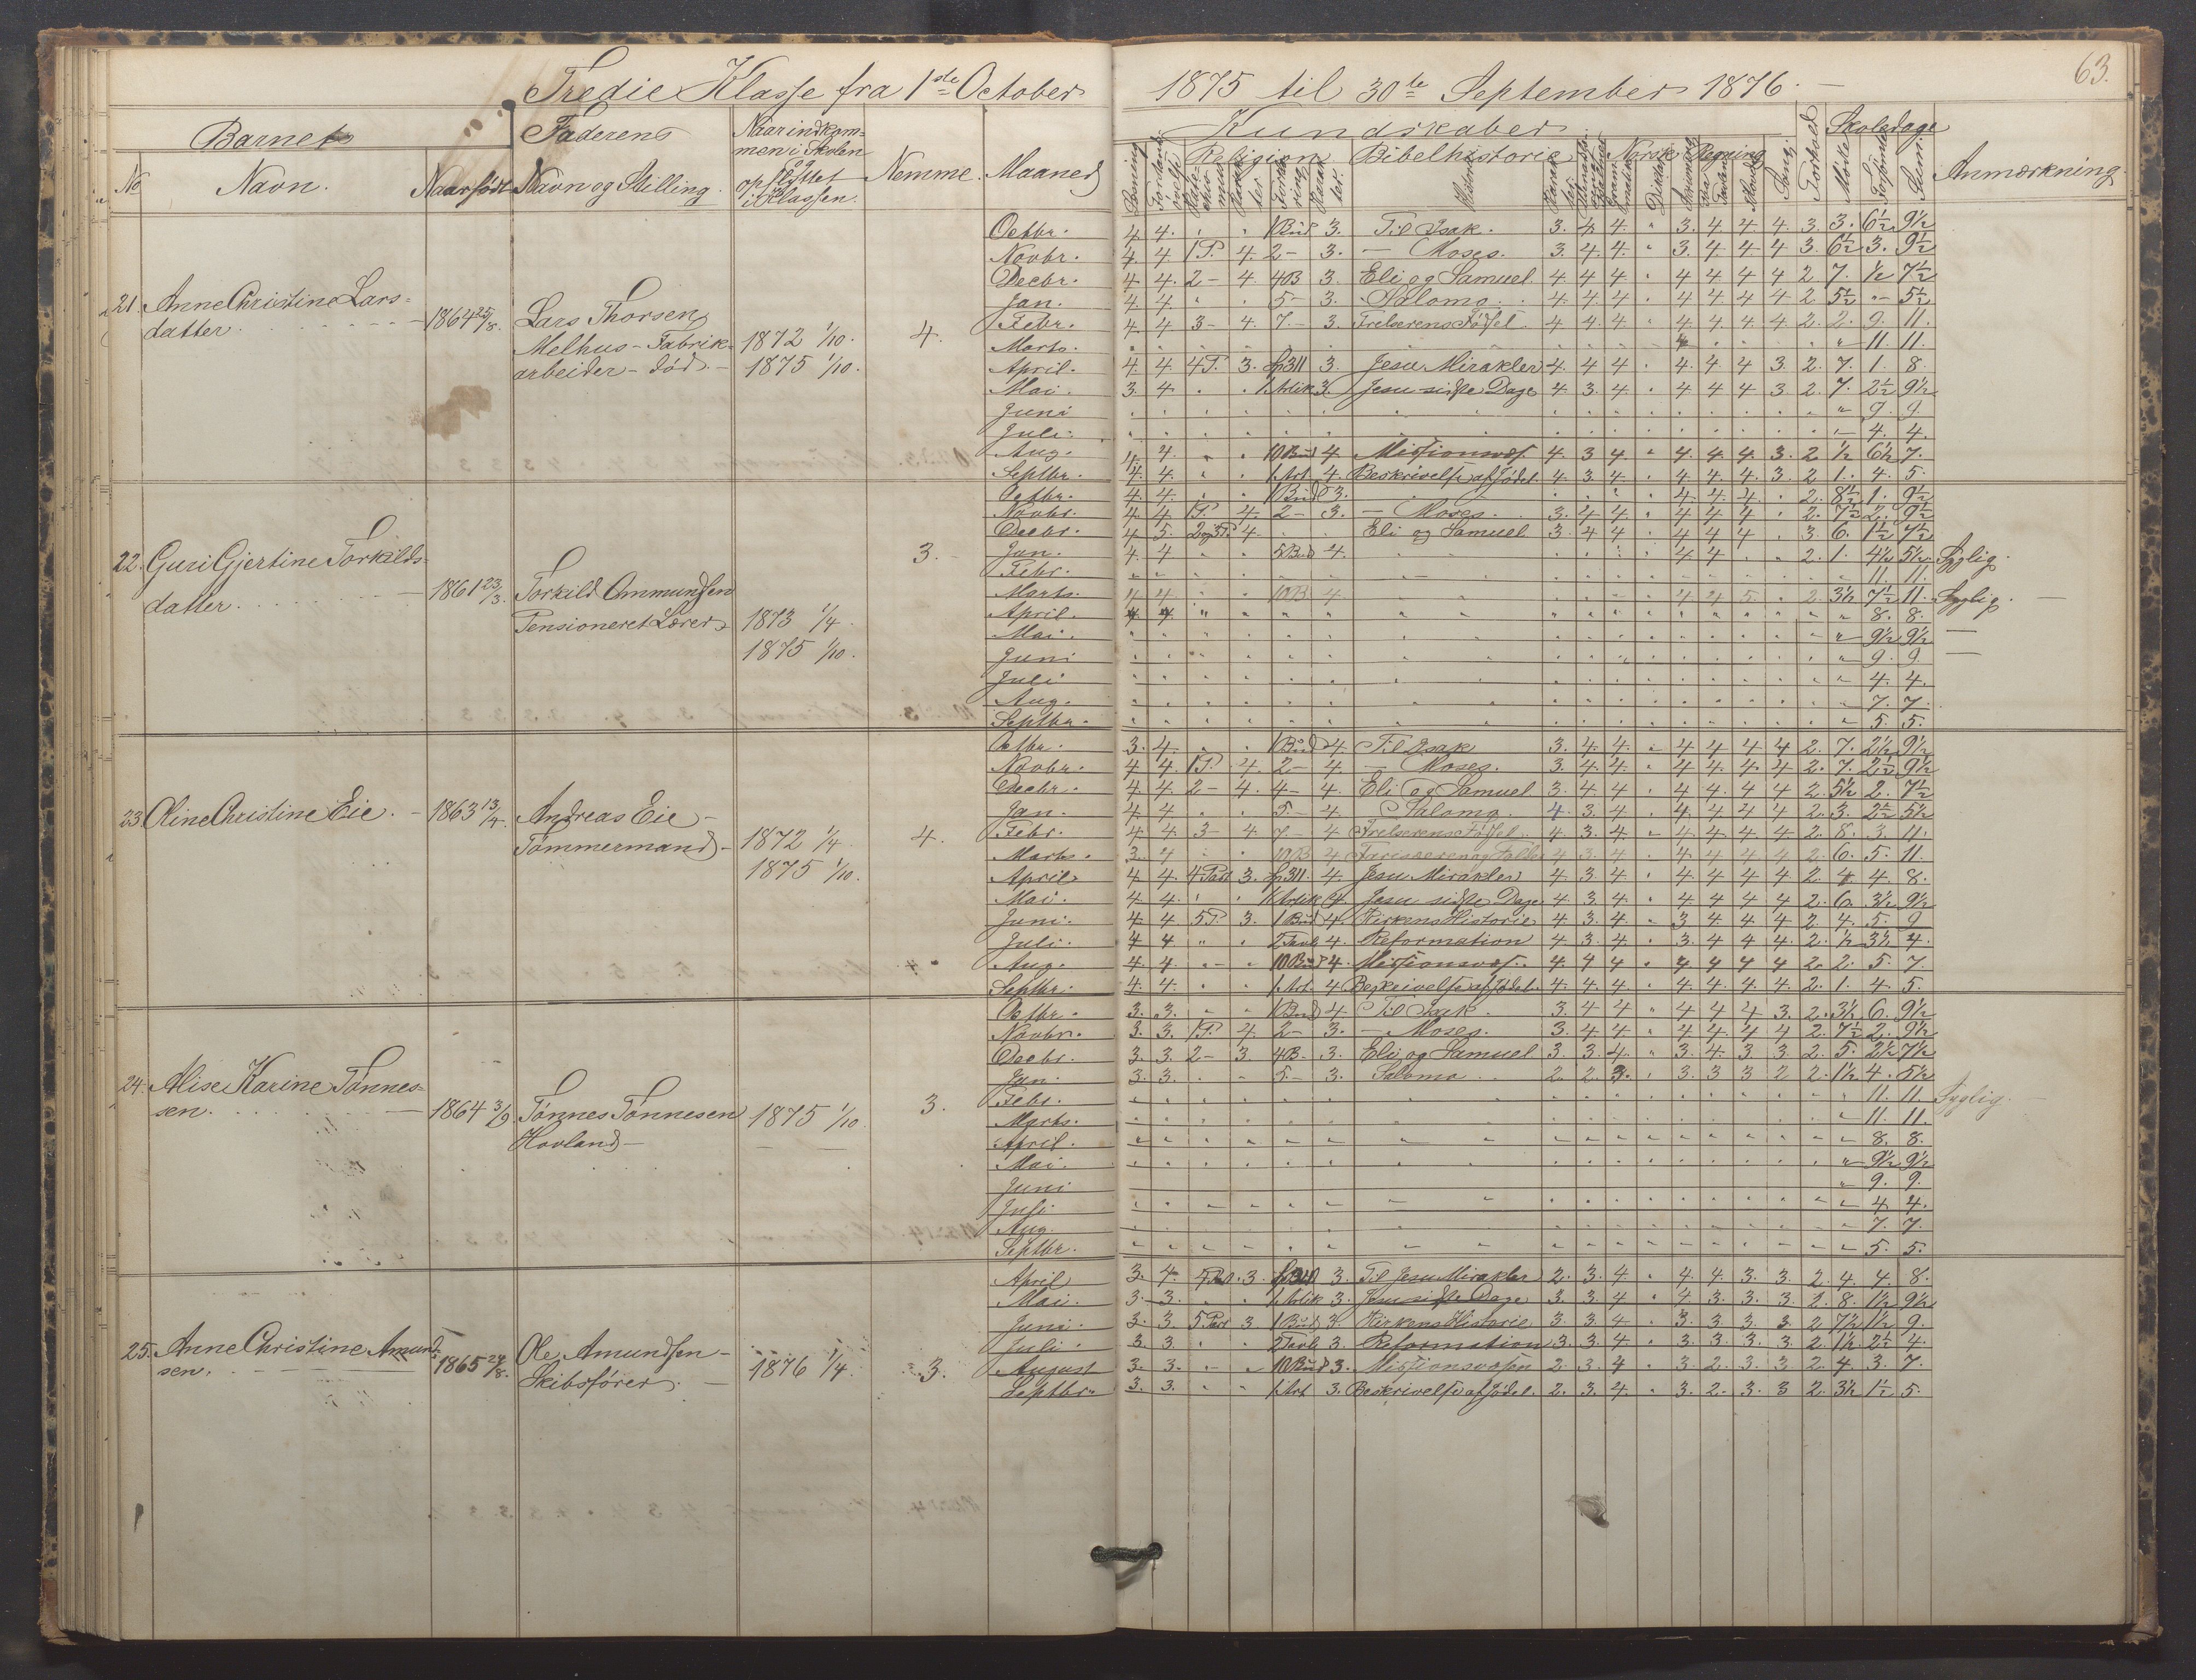 Tredie Klasse fra 1ste October 1875 til 30te September 1876.
63.
Barnets Faderens Naar indkommen i Skolen og opflyttet i Klassen. Nemme. Maaned Kundskaber Forhold Skoledage Anmærkning
No Navn. Naar født Navn og Stilling. Religion Bibelhistorie Norsk Regning Sang. Mødte Forsømte Sum.
21. Anne Christine Lars-
datter.
1864 25/8.
Lars Thorsen
Melhus - Fabrik-
arbeider - død.
1872 1/10.
1875 1/10.
4.
Octbr. 4. 4. 1 Bud 3. Til Isak. 3. 4. 4. 3. 4. 4. 4. 3. 3. 6½ 9½
Novbr. 4. 4. 1 P. 4. 2 - 3. - Moses. 3. 4. 4. 3. 4. 4. 4. 3. 6½ 3. 9½
Decbr. 4. 4. 2 - 4. 4B 3. Eli og Samuel 4. 4. 4. 4. 4. 4. 4. 2. 7. ½ 7½
Jan. 4. 4. 5 - 3. Salomo. 4. 4. 4. 4. 4. 4. 4. 2. 5½ 5½
Febr. 4. 4. 3 - 4. 7. - 3. Frelserens Fødsel 4. 4. 4. 4. 4. 4. 4. 2. 2. 9. 11.
Marts. 11. 11.
April. 4. 4. 4 P. 3. Sp 311 3. Jesu Mirakler 4. 4. 4. 4. 4. 4. 3. 2. 7. 1. 8.
Mai. 3. 4. 1 Artik 3. Jesu sidste Dage 4. 3. 4. 4. 4. 4. 3. 2. 7. 2½ 9½
Juni 9. 9.
Juli. 4. 4.
Aug. 4. 4. 10 Bud 4. Missionsvæs. 4. 3. 4. 4. 4. 4. 3. 2. ½ 6½ 7.
Septbr. 4. 4. 1 Art. 4. Beskrivelse af Jødel. 4. 3. 4. 4. 4. 4. 3. 2. 1. 4. 5.
22. Guri Gjertine Torkilds-
datter.
1861 23/3.
Torkild Ommundsen
Pensioneret Lærer
1873 1/4.
1875 1/10.
3.
Octbr. 4. 4. 1 Bud 3. 4. 4. 4. 2. 8½ 1. 9½
Novbr. 4. 4. 1 P. 4. 2 - 3. - Moses. 3. 4. 4. 4. 4. 4. 2. 7½ 2. 9½
Decbr. 4. 5. 2 og 3 P. 4. Eli og Samuel 3. 4. 4. 4. 4. 4. 3. 6. 1½ 7½
Jan. 4. 4. 5 Bud 4. 4. 4. 2. 1. 4½ 5½ Syglig.
Febr. 11. 11.
Marts. 4. 4. 10 B 4. 4. 4. 5. 2. 3½ 7½ 11. Syglig. —
April. 8. 8.
Mai. 9½ 9½ —
Juni 9. 9. —
Juli 4. 4.
Aug. 7. 7.
Septbr. 5. 5.
23. Oline Christine Eie.
1863 13/4.
Andreas Eie -
Tømmermand -
1872 1/4
1875 1/10.
4.
Octbr. 3. 4. 1 Bud 4. Til Isak 3. 4. 4. 4. 4. 4. 4. 2. 7. 2½ 9½
Novbr. 4. 4. 1 P. 4. 2 - 4. - Moses. 3. 4. 4. 4. 4. 4. 4. 2. 7. 2½ 9½
Decbr. 4. 4. 2 - 4. 4 - 4. Eli og Samuel 3. 4. 4. 4. 4. 4. 4. 2. 5½ 2. 7½
Jan. 4. 4. 5. - 4. Salomo. 4. 3. 4. 4. 4. 4. 4. 2. 3. 2½ 5½
Febr. 4. 4. 3 - 4. 7. - 4. Frelserens Fødsel. 4. 3. 4. 4. 4. 4. 4. 2. 8. 3. 11.
Marts. 3. 4. 10 B 4. Farisæeren og Tolder 4. 3. 4. 4. 4. 4. 4. 2. 6. 5. 11.
April 4. 4. 4 Part 3. Sp 311. 4. Jesu Mirakler 4. 3. 4. 4. 4. 4. 4. 2. 4. 4. 8.
Mai. 4. 4. 1 Artik 4. Jesu sidste Dage. 4. 3. 4. 4. 4. 4. 4. 2. 6. 3½ 9½
Juni. 4. 4. 5 P. 3. 1 Bud 4. Kirkens Historie 4. 3. 4. 3. 4. 4. 4. 2. 4. 5. 9
Juli. 4. 4. 2 Tavle 4. Reformation 4. 3. 4. 3. 4. 4. 4. 2. ½ 3½ 4.
Aug. 4. 4. 10 Bud 4. Missionsvæs. 4. 4. 4. 4. 4. 4. 4. 2. 2. 5. 7.
Septbr. 4. 4. 1 Art. 4. Beskrivelse af Jødel. 4. 4. 4. 4. 4. 4. 4. 2. 1. 4. 5.
24. Alise Karine Tønnes-
sen.
1864 3/9.
Tønnes Tønnesen
Hovland -
1875 1/10.
3.
Octbr. 3. 3. 1 Bud 4. Til Isak. 3. 4. 4. 4. 4. 4. 3. 2. 3½ 6. 9½
Novbr. 3. 3. 1 P. 4. 2 - 3. - Moses. 3. 4. 4. 4. 4. 4. 4. 2. 7½ 2. 9½
Decbr. 3. 3. 2 - 3. 4B - 3. Eli og Samuel 3. 3. 4. 3. 4. 3. 3. 2. 5. 2½ 7½
Jan. 3. 3. 5. - 3. Salomo 2. 2. 3. 3. 3. 3. 2. 2. 1½ 4. 5½
Febr. 11. 11. Syglig. —
Marts. 11. 11.
April. 8. 8.
Mai. 9½ 9½
Juni 9. 9.
Juli. 4. 4.
Aug. 7. 7.
Septbr. 5. 5.
25. Anne Christine Amund-
sen.
Ole Amundsen -
Skibsfører. -
1876 1/4.
3.
April 3. 4. 3. 3. Til Jesu Mirakler 2. 3. 4. 4. 4. 3. 3. 2. 4. 4. 8.
Mai. 3. 3. 1 Artik 3. Jesu sidste Dage 3. 3. 4. 4. 3. 3. 3. 2. 8. 1½ 9½
Juni. 3. 3. 5 Part 3 1 Bud 3. Kirkens Historie 3. 3. 4. 3. 3. 3. 3. 2 7½ 1½ 9.
Juli. 3. 3. 2 Tavle 3. Reformation 3. 3. 4. 3. 3. 3. 3. 2. 1½ 2½ 4.
August 3. 3. 10 Bud 3. Missionsvæsen 2. 3. 4. 3. 2. 3. 3. 2. 4. 3. 7.
Septbr. 3. 3. 1 Art 3. Beskrivelse af Jødel. 2. 3. 4. 3. 2. 3. 3 2. 3½ 1½ 5.